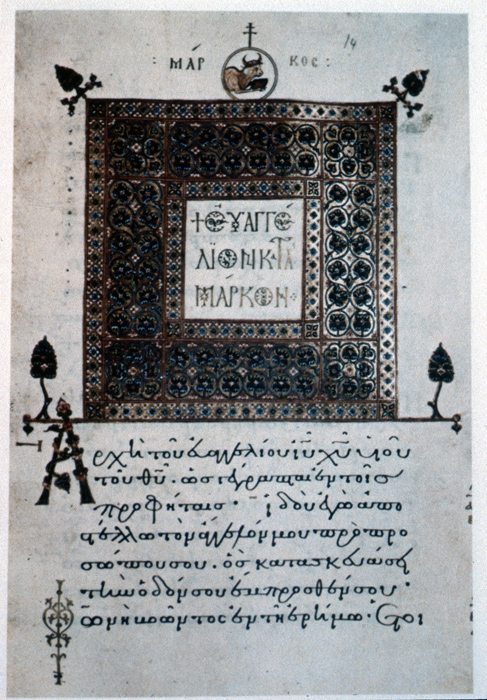 : ΜΆΡ ΚΟΣ :
14
+ ΕΥΑΓΓΕ
ΛΙΟΝ Κ ΤΑ
ΜΑΡΚΟΝ
Αρχὴ τοῦ εὐαγγελίου ιυ χυ υιοῦ
τοῦ θυ. ὡς γέγραπται ἐν τοῖς
προφήταις· ἰδοὺ ἐγὼ ἀπο
στέλλω τὸν ἄγγελόν μου πρὸ προ
σώπου σου. ὃς κατασκευάσει
τὴν ὁδόν σου ἔμπροσθέν σου·
φωνὴ βοῶντος ἐν τῆ ἐρήμω· Ετοι